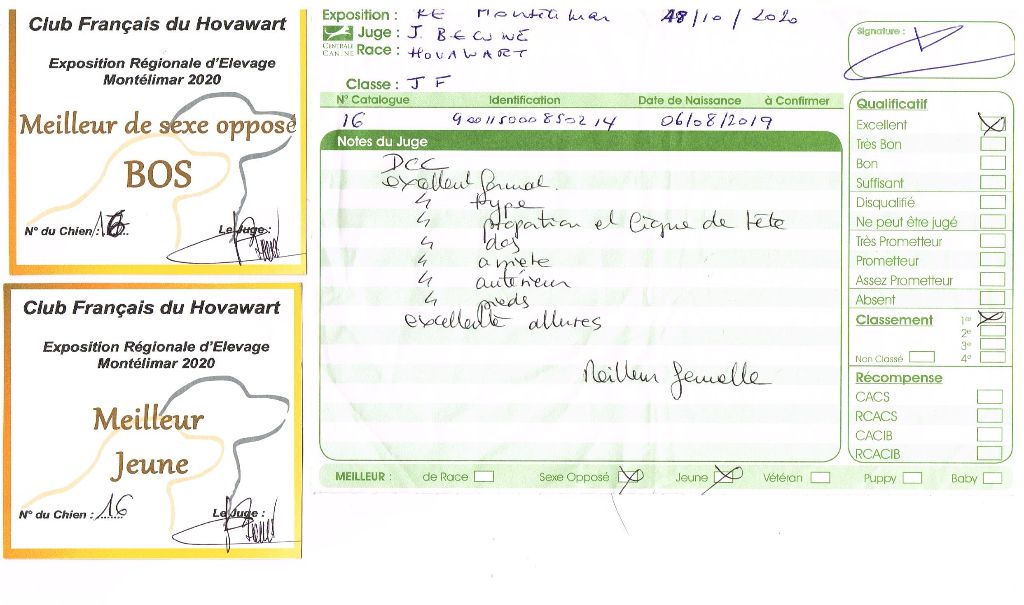 Club Français du Hovawart
Exposition Régionale d'Elevage
Montélimar 2020
Meilleur de sexe opposé
BOS
N° du Chien : 16
Le Juge :
Club Français du Hovawart
Exposition Régionale d'Elevage
Montélimar 2020
Meilleur
Jeune
N° du Chien : 16
Le Juge :
Exposition : RE Montélimar 18/10/2020
Juge : J. BECUWE
CENTRALE CANINE
Race : HOVAWART
Classe : JF
Signature :
N° Catalogue Identification Date de Naissance à Confirmer
16 900115000850214 06/08/2019
Notes du Juge
DCC
excellent format.
" type
" proportion et ligne de tête
" dos
" arrière
" antérieur
" pieds
excellente allures
Meilleur femelle
Qualificatif
Excellent
Très Bon
Bon
Suffisant
Disqualifié
Ne peut être jugé
Très Prometteur
Prometteur
Assez Prometteur
Absent
Classement 1er
2e
3e
Non Classé 4e
Récompense
CACS
RCACS
CACIB
RCACIB
MEILLEUR : de Race Sexe Opposé Jeune Vétéran Puppy Baby